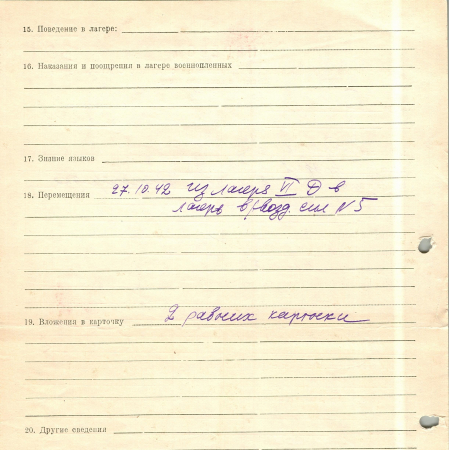 15. Поведение в лагере:
16. Наказания и поощрения в лагере военнопленных
17. Знание языков
18. Перемещения 27.10.42 из лагеря VI Д в
лагерь в/возд. сил N 5
19. Вложения в карточку 2 рабочих карточки
20. Другие сведения